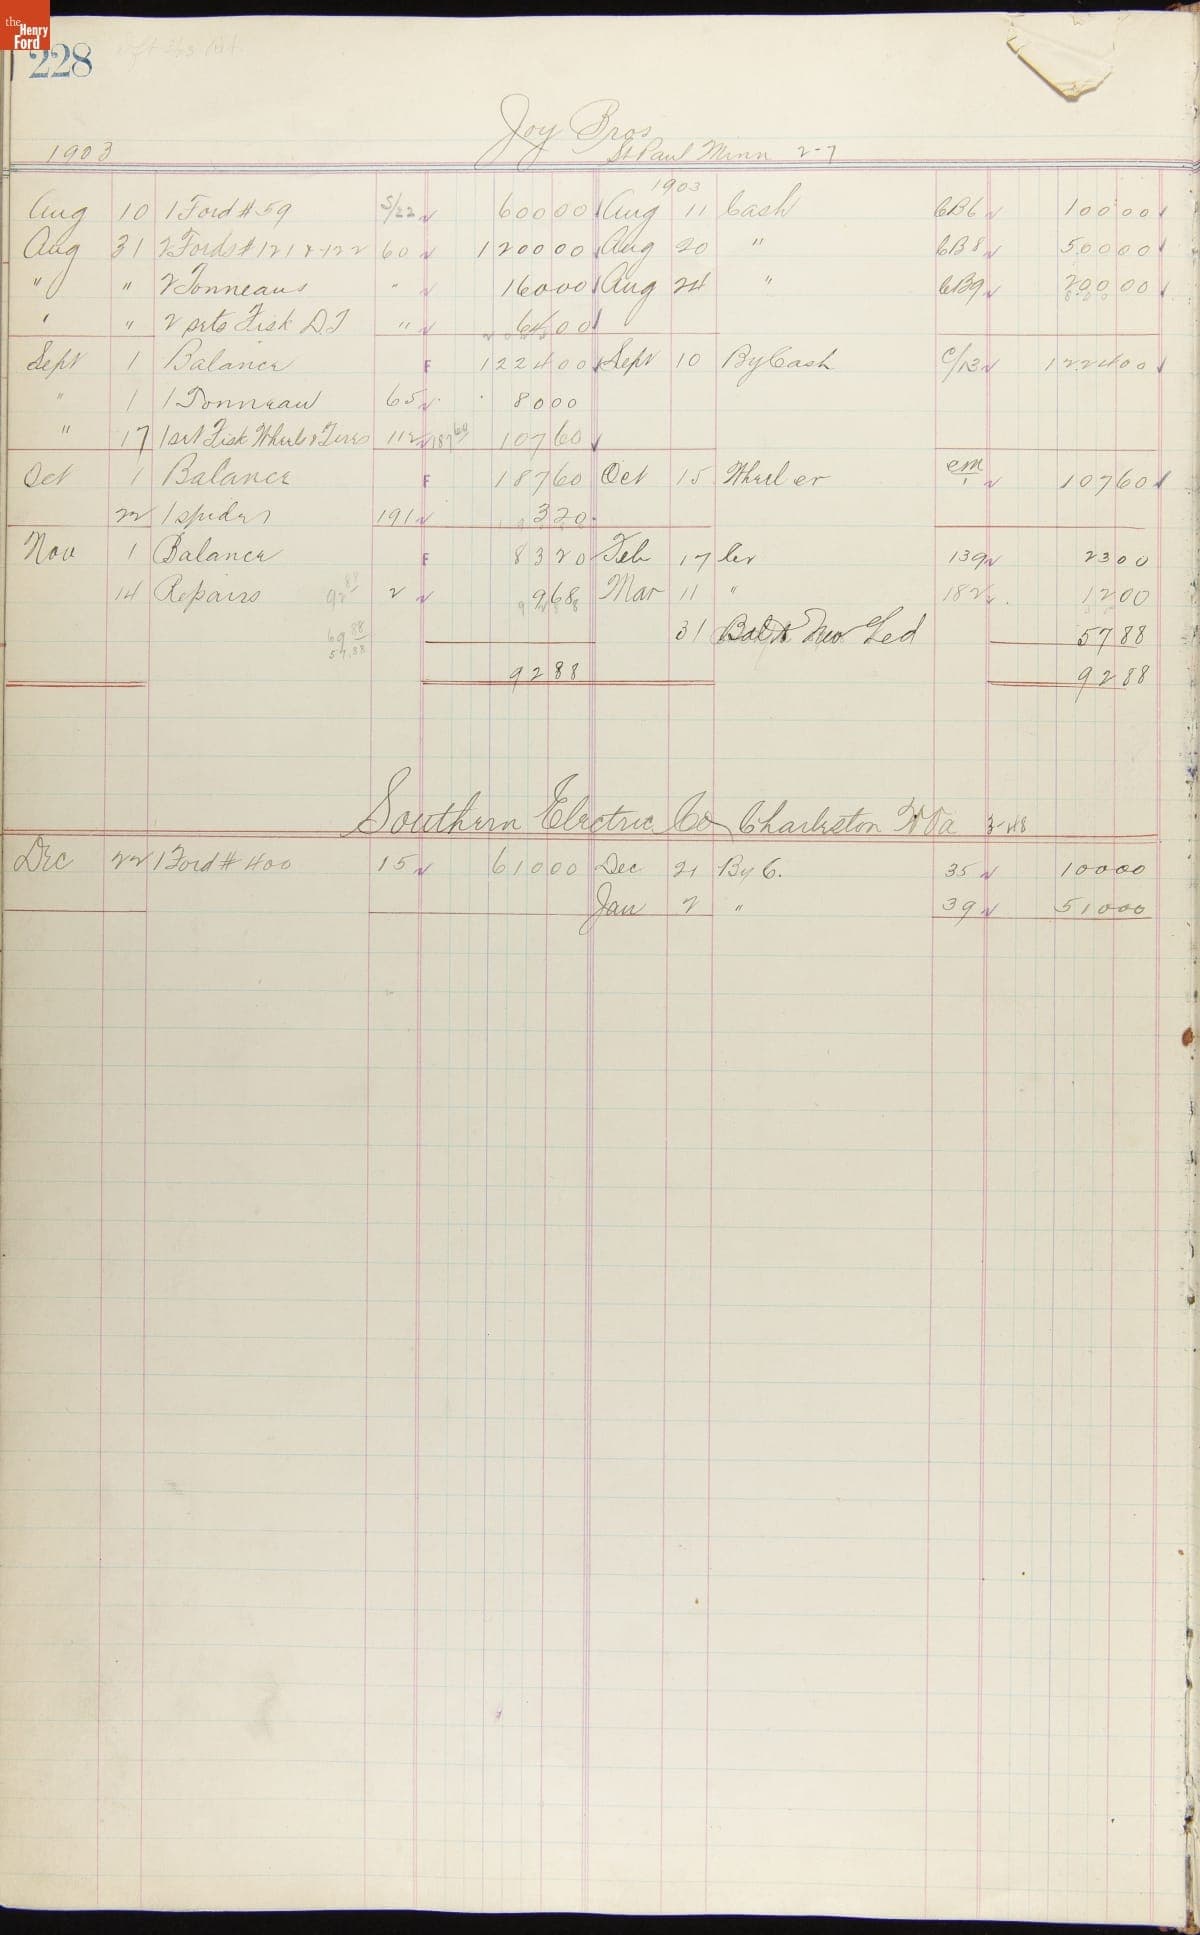 the Henry Ford
228
Joy Bros
1903 St Paul Minn 2-7
1903
Aug 10 1 Ford # 59 S/22 600 00 Aug 11 Cash CB6 100 00
Aug 31 2 Fords # 121 & 122 60 1200 00 Aug 20 " CB8 500 00
" " 2 Tonneaus " 160 00 Aug 24 " CB9 200 00
" " 2 sets Fisk D T " 64 00
Sept 1 Balance F 1224 00 Sept 10 By Cash C/13 1224 00
" 1 1 Tonneau 65 80 00
" 17 1 set Fisk Wheels & Tires 112 187 60 107 60
Oct 1 Balance F 187 60 Oct 15 Wheeler 107 60
22 1 spider 191 3 20
Nov 1 Balance F 83 20 Feb 17 Cr 139 23 00
14 Repairs 92 88 2 9 68 Mar 11 " 182 12 00
69 88 31 Bal to New Led 57 88
57.88
92 88 92 88
Southern Electric Co Charleston W Va 3-48
Dec 22 1 Ford # 400 15 610 00 Dec 21 By C. 35 100 00
Jan 2 " 39 510 00